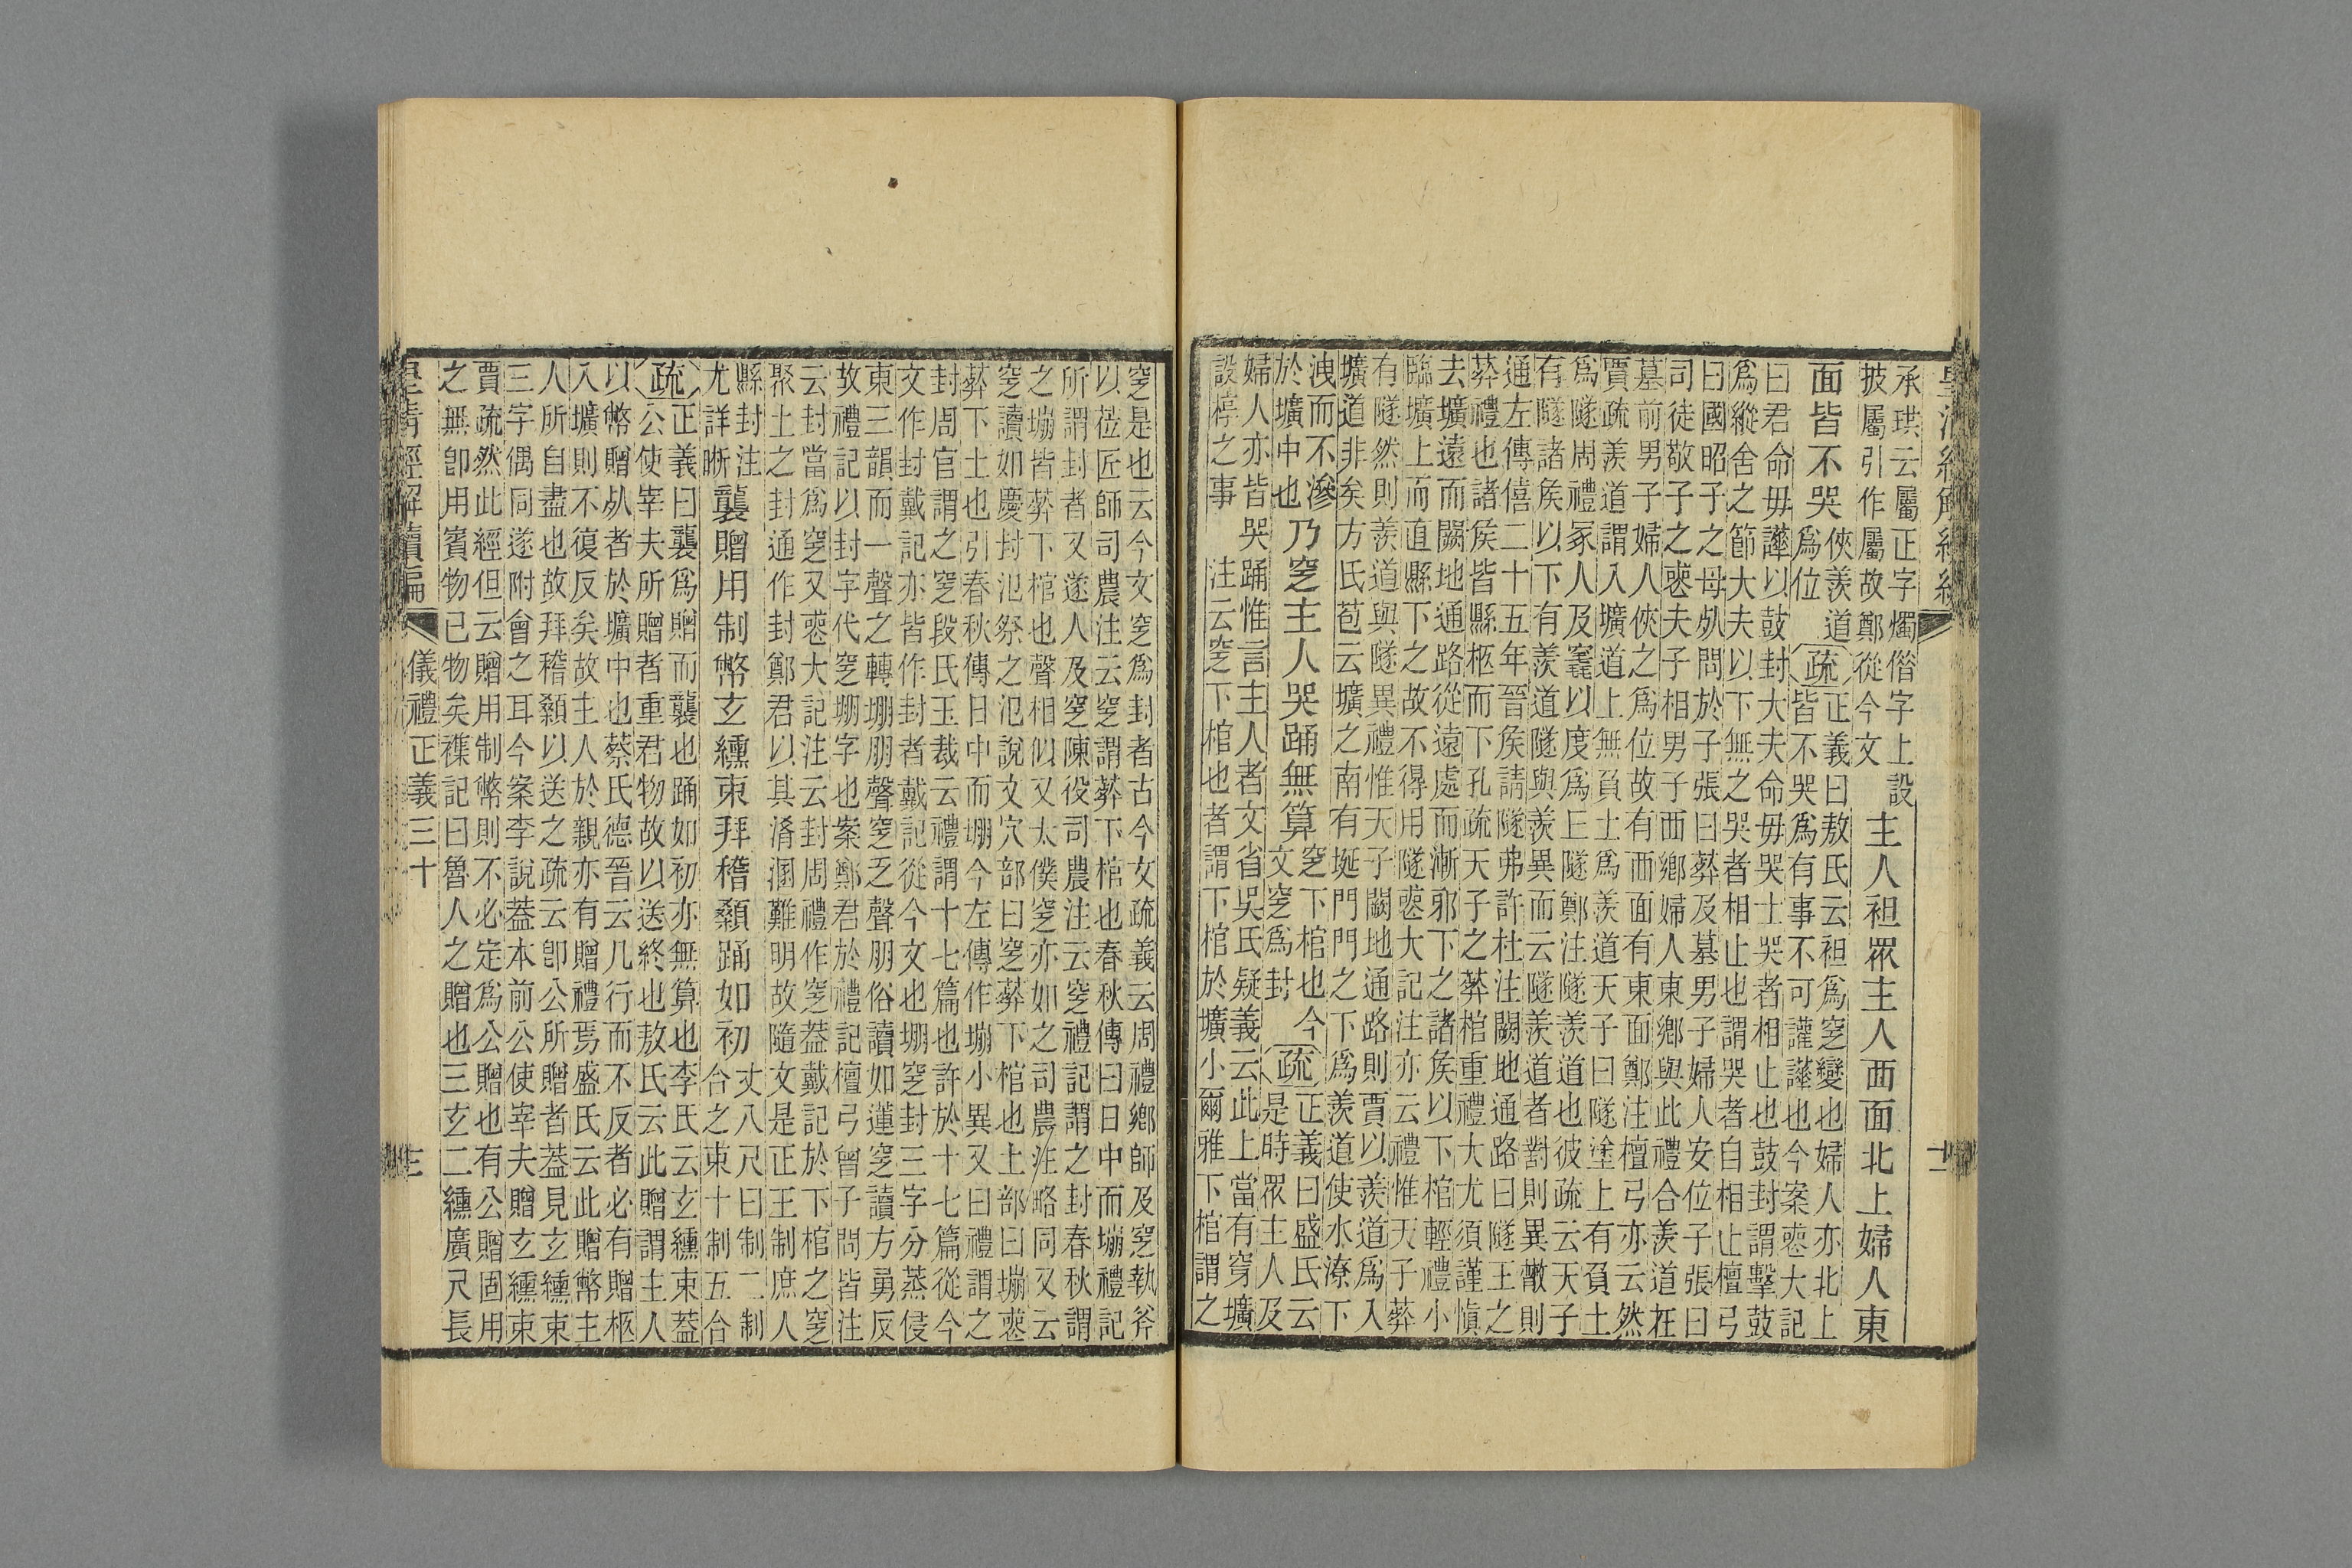 皇清經解續編
承珙云屬正字燭俗字上設
披屬引作屬故鄭從今文
主人袒眾主人西面北上婦人東
面皆不哭
俠羨道
為位
疏
正義曰敖氏云袒為窆變也婦人亦北上
皆不哭為有事不可讙譁也今案喪大記
曰君命毋譁以鼓封大夫命毋哭士哭者相止也鼓封謂擊鼓
為縱舍之節大夫以下無之哭者相止也謂哭者自相止檀弓
曰國昭子之母死問於子張曰葬及墓男子婦人安位子張曰
司徒敬子之喪夫子相男子西鄉婦人東鄉與此禮合羨道在
墓前男子婦人俠之為位故有西面有東面鄭注檀弓亦云然
賈疏羨道謂入壙道上無負土為羨道天子曰隧塗上有負土
為隧周禮冢人及竁以度為丘隧鄭注隧羨道也彼疏云天子
有隧諸侯以下有羨道隧與羨異而云隧羨道者對則異散則
通左傳僖二十五年晉侯請隧弗許杜注闕地通路曰隧王之
葬禮也諸侯皆縣柩而下孔疏天子之葬棺重禮大尤須謹慎
去壙遠而闕地通路從遠處而漸邪下之諸侯以下棺輕禮小
臨壙上而直縣下之故不得用隧喪大記注亦云禮惟天子葬
有隧然則羨道與隧異禮惟天子闕地通路則賈以羨道為入
壙道非矣方氏苞云壙之南有埏門門之下為羨道使水潦下
洩而不滲
於壙中也
乃窆主人哭踊無算
窆下棺也今
文窆為封
疏
正義曰盛氏云
是時眾主人及
婦人亦皆哭踊惟言主人者文省吳氏疑義云此上當有穿壙
設椁之事 注云窆下棺也者謂下棺於壙小爾雅下棺謂之
十二
窆是也云今文窆為封者古今文疏義云周禮鄉師及窆執斧
以蒞匠師司農注云窆謂葬下棺也春秋傳曰日中而塴禮記
所謂封者又遂人及窆陳役司農注云窆禮記謂之封春秋謂
之塴皆葬下棺也聲相似又太僕窆亦如之司農注略同又云
窆讀如慶封氾祭之氾說文穴部曰窆葬下棺也土部曰塴喪
葬下土也引春秋傳日中而堋今左傳作塴小異又曰禮謂之
封周官謂之窆段氏玉裁云禮謂十七篇也許於十七篇從今
文作封戴記亦皆作封者戴記從今文也堋窆封三字分蒸侵
東三韻而一聲之轉堋朋聲窆乏聲朋俗讀如蓬窆讀方勇反
故禮記以封字代窆堋字也案鄭君於禮記檀弓曾子問皆注
云封當為窆又喪大記注云封周禮作窆蓋戴記於下棺之窆
聚土之封通作封鄭君以其淆溷難明故隨文是正王制庶人
縣封注
尤詳晰
襲贈用制幣玄纁束拜稽顙踊如初
丈八尺曰制二制
合之束十制五合
疏
正義曰襲為贈而襲也踊如初亦無算也李氏云玄纁束蓋
公使宰夫所贈者重君物故以送終也敖氏云此贈謂主人
以幣贈死者於壙中也蔡氏德晉云凡行而不反者必有贈柩
入壙則不復反矣故主人於親亦有贈禮焉盛氏云此贈幣主
人所自盡也故拜稽顙以送之疏云即公所贈者蓋見玄纁束
三字偶同遂附會之耳今案李說蓋本前公使宰夫贈玄纁束
賈疏然此經但云贈用制幣則不必定為公贈也有公贈固用
之無即用賓物己物矣雜記曰魯人之贈也三玄二纁廣尺長
皇清經解續編
儀禮正義三十